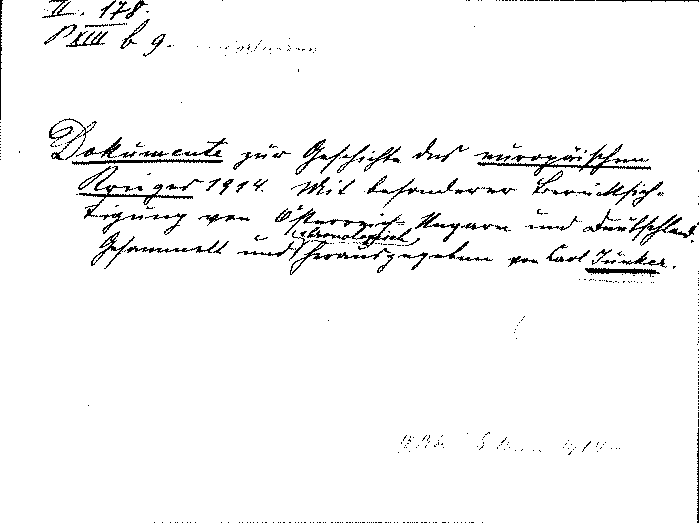 II. 178.
P XIII b 9.
Dokumente zur Geschichte des europäischen
Krieges 1914. Mit besonderer Berücksich-
tigung von Österreich-Ungarn und Deutschland.
chronologisch
Gesammelt und herausgegeben von Carl Junker.